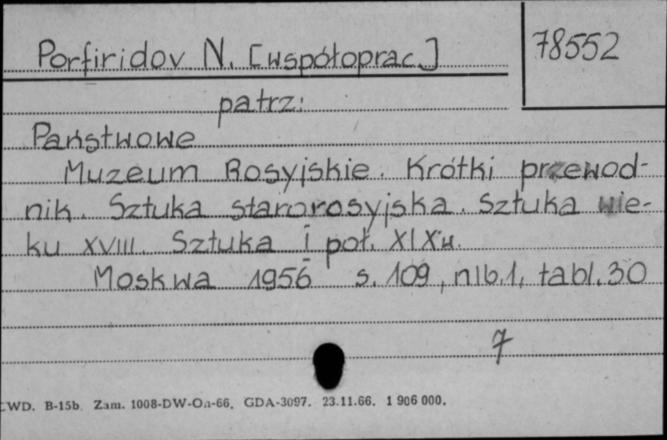 Porfiridov N. [współoprac.]
78552
patrz:
Państwowe
Muzeum Rosyjskie. Krótki przewod-
nik. Sztuka starorosyjska. Sztuka wie-
ku XVIII. Sztuka I poł. XIX w.
Moskwa 1956 s. 109, nlb. 1, tabl. 30
7
CWD. B-15b. Zam. 1008-DW-On-66. GDA-3097. 23.11.66. 1 906 000.